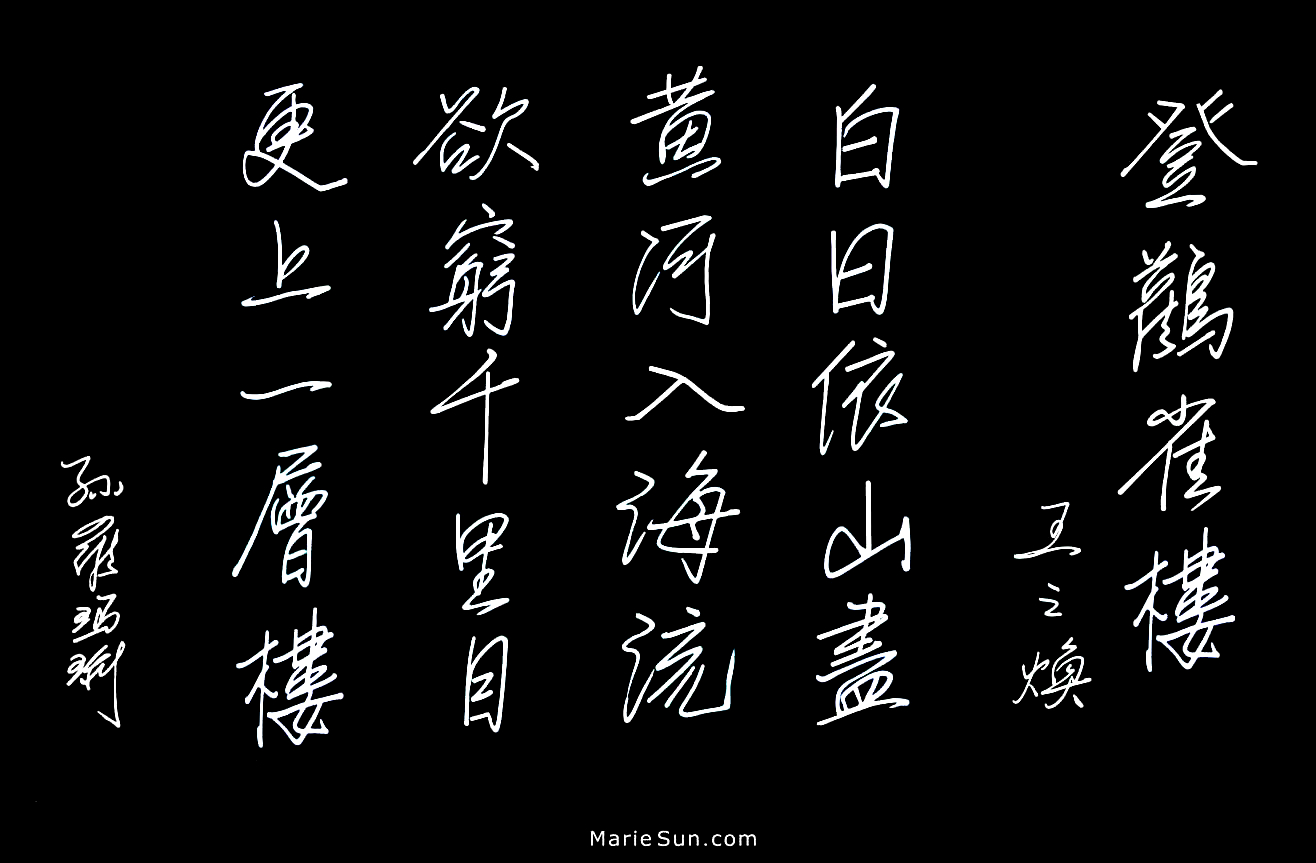 登鸛雀樓
王之煥
白日依山盡
黃河入海流
欲窮千里目
更上一層樓
孫羅瑪琍
MarieSun.com